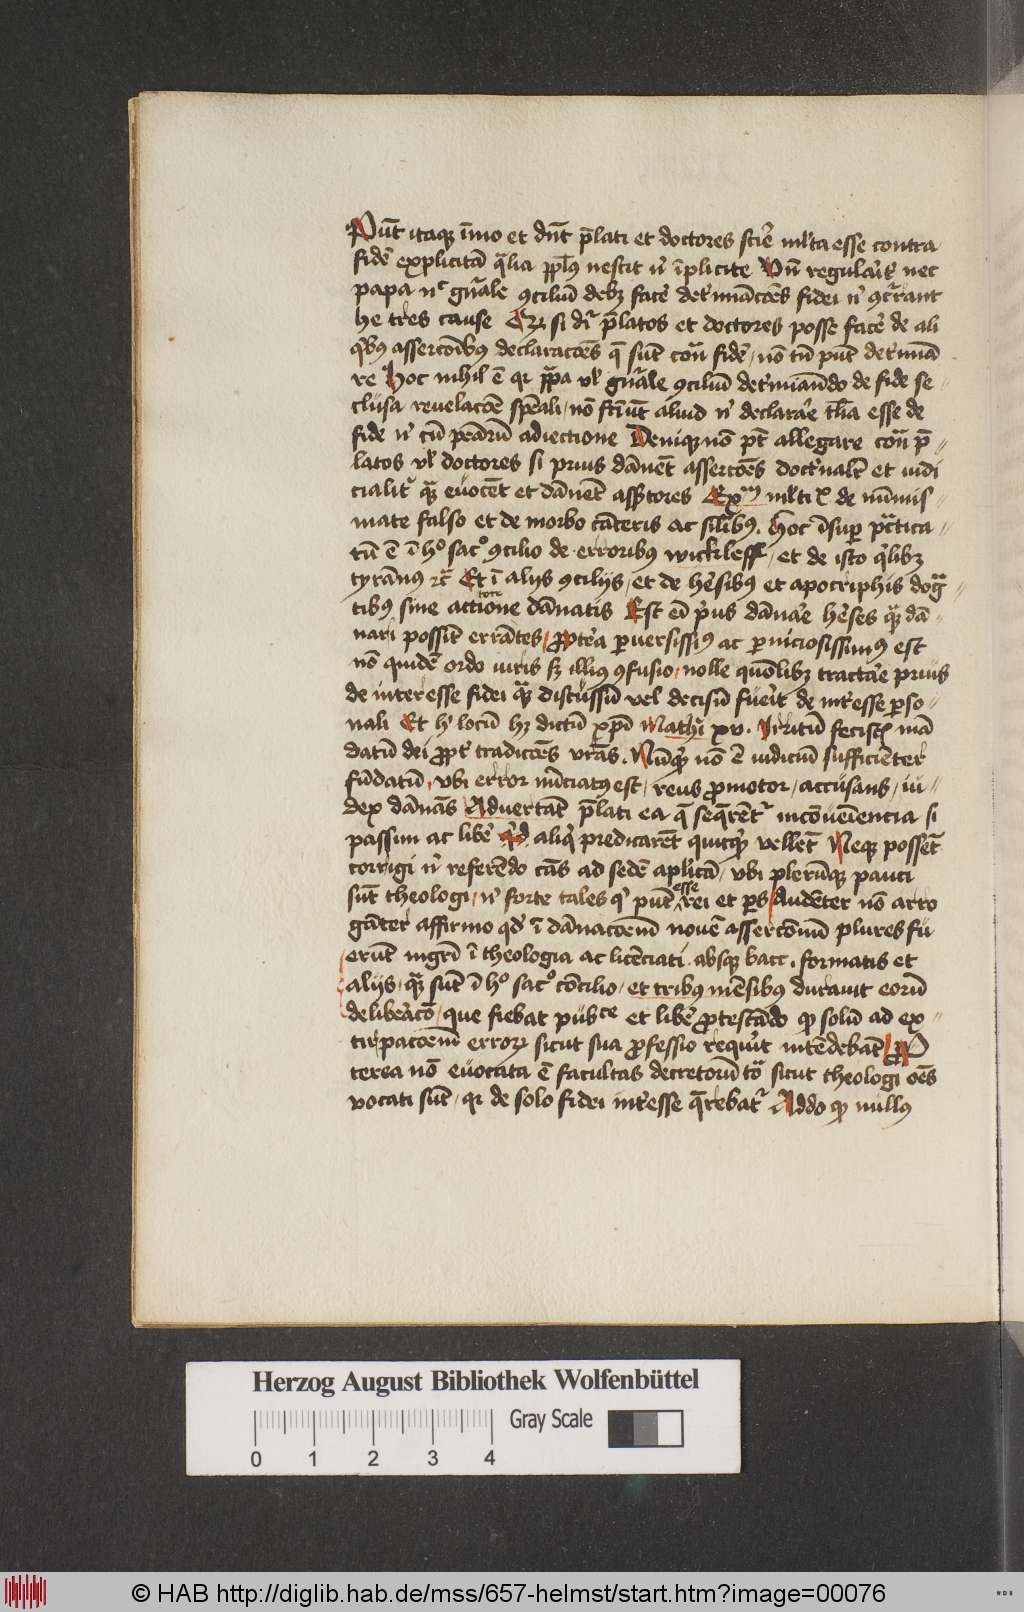 Pn̄t itaqꝫ īmo et dn̄t p̄lati et doctores scīe ml'ta esse contra
fidē explicitā q̄lia ppl̄us nescit n' īplicite Vn̄ regularr nec
papa nᶜ gn̄ale ꝯciliū debꝫ facē det'minac̄oēs fidei n' ꝯcr̄rant
he tres cause Eꝝ si dr̄ p̄latos et doctores posse facē de ali
qͥbꝰ asserc̄oībꝰ declarac̄oēs q̄ sūt cont̄ fidē, nō tn̄ pn̄t det'mīa
re Hoc nihil ē qr ppa vl' gn̄ale ꝯciliū det'minando de fide se-
clusa reuelac̄oē spēali, nō faciūt aliud n' declarare tl̄ia esse de
fide n' cū penarū adiectione Deniqꝫ nō pt̄ allegare cont̄ p̄-
latos vl' doctores si prius dānēt asserc̄oēs doct'nalr̄ et iudi
cialit' qͣꝫ euocēt et dānēt assertores Exᵐ ml'tꝯ de nūmis-
mate falso et de morbo cāceris ac sil̄ibꝰ. Hoc īsuper pͣctica-
tū ē ī hº sacº ꝯcilio de erroribꝰ wickleff, et de isto qͥlibꝫ
tyrānꝰ ⁊c̄ Et ī alijs ꝯcilijs, et de hēsibꝰ et apocriphis dogͣ-
tibꝰ sine actione dānatis Est eī prius dānare hēses qͣꝫ dā-
nari possīt errātes, ꝓptēa peruersissīꝰ ac perniciosissimꝰ est
nō quidē ordo iuris sꝫ illiꝰ ꝯfusio, nolle quōlibꝫ tractāe prius
de interesse fidei qͣꝫ discussū vel decisū fuerit de int'esse perso-
nali Et h' locū hꝫ dictū xp̄i Mathi xv. Irritū fecistꝭ mā
datū dei ꝓpt' tradic̄oēs vr̄as. Nūqͥd nō ē iudiciū sufficienter
fūdatū, vbi error nūciatꝰ est, reus ꝓmotor, accusans, iu-
dex dānās Aduertāt p̄lati ea q̄ seqr̄ēt' incōueīencia si
passim ac libē aliqͥ predicarēt quicqͥd vellēt Neqꝫ possēt
corrigi n' referēdo cās ad sedē aplicā, vbi plerūqꝫ pauci
sūt theologi, n' forte tales qͥ pn̄t esse rei et ꝑs Audēter nō arro
gāter affirmo qd' ī dānac̄oēm nouē asserc̄onū plures fu
erūt mgr̄i ī theologia ac licēciati absqꝫ bacc. formatis et
alijs, qͣꝫ sūt ī hº sacº cōcilio, et tribus mēsibus durauit eorū
deliberac̄o, que fiebat pubᶜᵉ et libē ꝓtestādo qꝫ solū ad ex-
tirpac̄oēm erroꝝ sicut sua ꝓfessio requirit intēdebāt ꝓp
terea nō euocata ē facultas decretorū tōͣ sicut theologi oēs
vocati sūt, qr de solo fidei int'esse q̄rebat' Addo qꝫ nullus
Herzog August Bibliothek Wolfenbüttel
Gray Scale
0 1 2 3 4
© HAB http://diglib.hab.de/mss/657-helmst/start.htm?image=00076